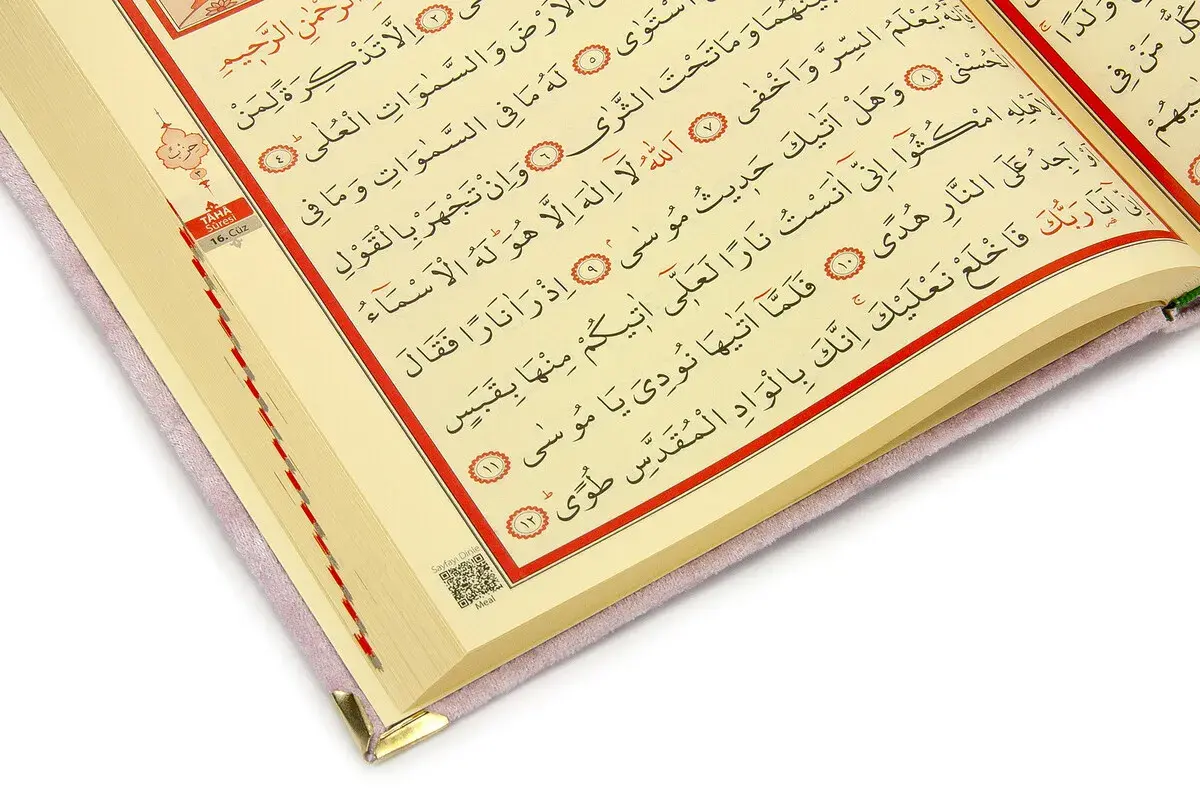 وَلَدًا
كُلُّ مَنْ فِي
الرَّحْمٰنِ الرَّحٖيمِ
٢ اِلَّا تَذْكِرَةً لِمَنْ
الْاَرْضَ وَالسَّمٰوَاتِ الْعُلٰىؕ ٤
اسْتَوٰى ٥ لَهُ مَا فِي السَّمٰوَاتِ وَمَا فِي
بَيْنَهُمَا وَمَا تَحْتَ الثَّرٰى ٦ وَاِنْ تَجْهَرْ بِالْقَوْلِ
يَعْلَمُ السِّرَّ وَاَخْفٰى ٧ اَللّٰهُ لَٓا اِلٰهَ اِلَّا هُوَؕ لَهُ الْاَسْمَٓاءُ
الْحُسْنٰى ٨ وَهَلْ اَتٰيكَ حَدٖيثُ مُوسٰىۘ ٩ اِذْ رَاٰ نَارًا فَقَالَ
لِاَهْلِهِ امْكُثُٓوا اِنّٖٓي اٰنَسْتُ نَارًا لَعَلّٖٓي اٰتٖيكُمْ مِنْهَا بِقَبَسٍ
اَوْ اَجِدُ عَلَى النَّارِ هُدًى ١٠ فَلَمَّٓا اَتٰيهَا نُودِيَ يَا مُوسٰى ١١
اِنّٖٓي اَنَا رَبُّكَ فَاخْلَعْ نَعْلَيْكَۚ اِنَّكَ بِالْوَادِ الْمُقَدَّسِ طُوًىؕ ١٢
حزب
TÂHÂ
Sûresi
16. Cüz
Sayfayı Dinle
Meal